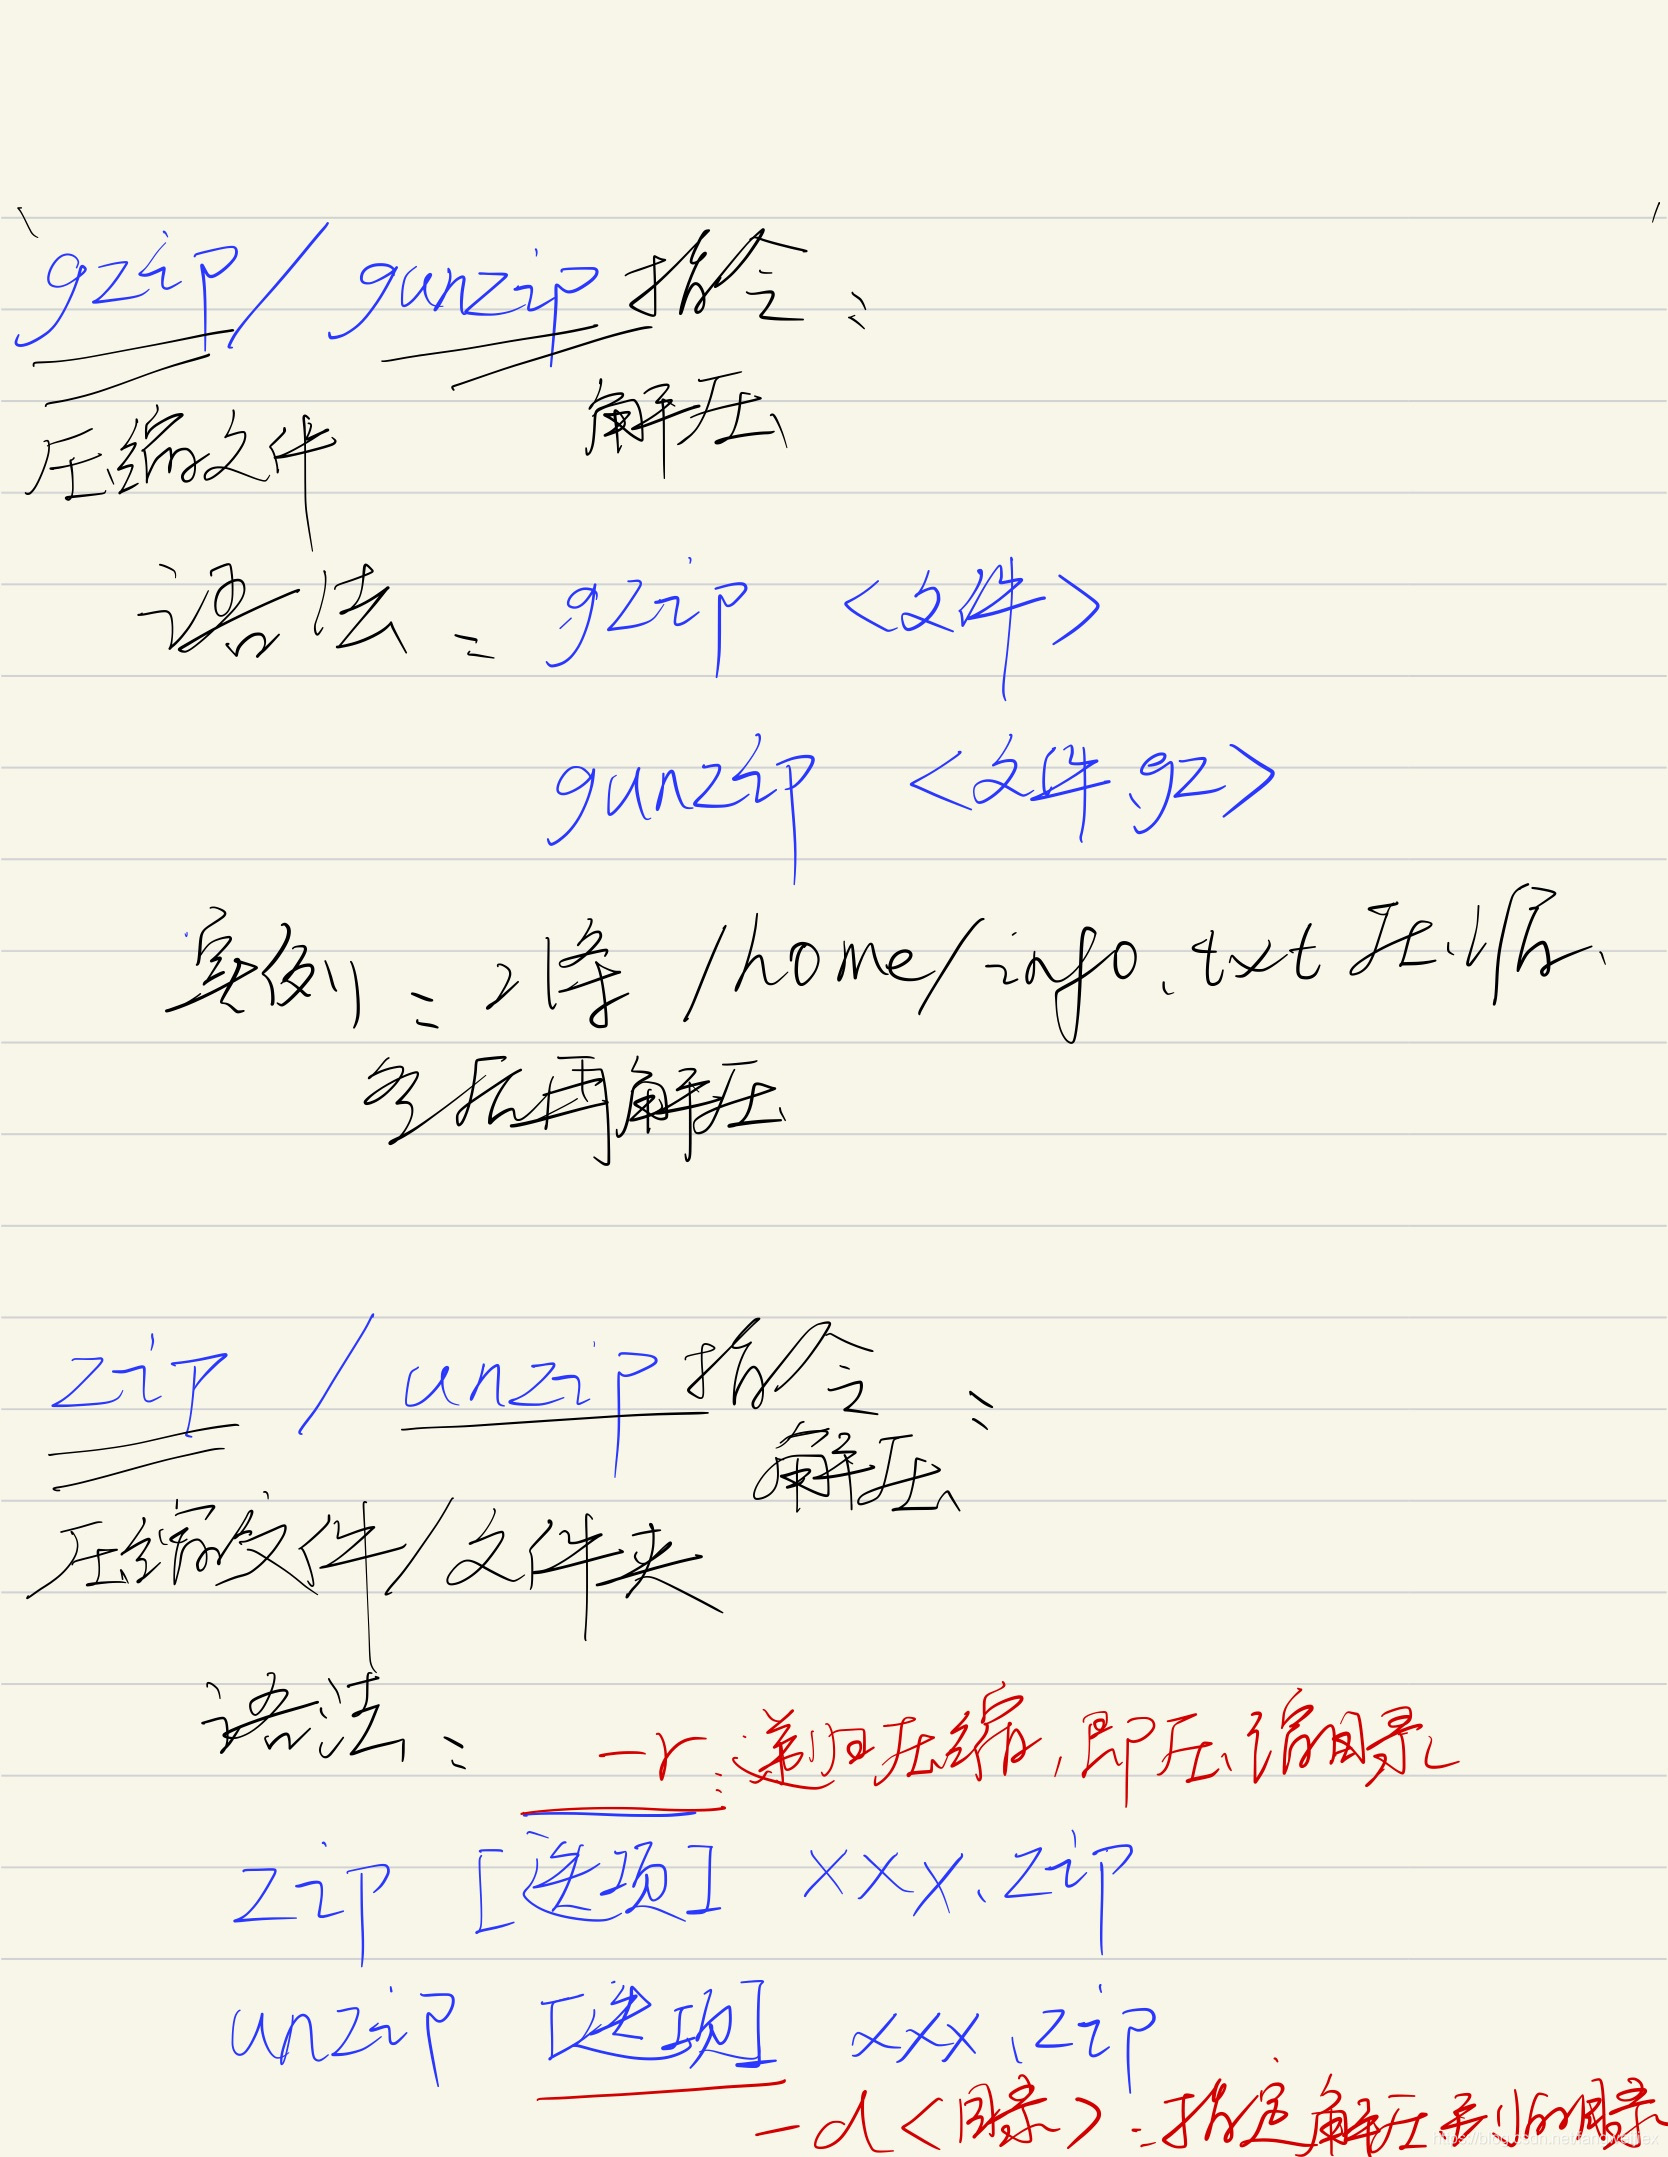 gzip / gunzip 指令：
解压
压缩文件
语法： gzip <文件>
gunzip <文件.gz>
实例：将 /home/info.txt 压缩
然后再解压
zip / unzip 指令：
解压
压缩文件/文件夹
语法：
-r：递归压缩，即压缩目录
zip [选项] xxx.zip
unzip [选项] xxx.zip
-d<目录>：指定解压到的目录